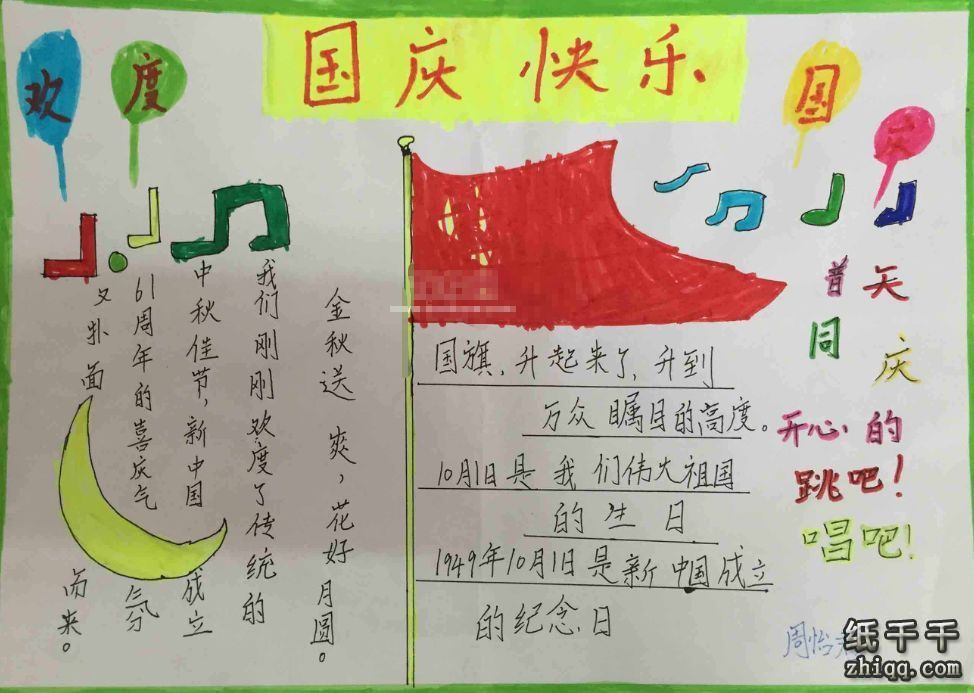 国庆快乐
欢度国庆
金秋送爽，花好月圆。
我们刚刚欢度了传统的
中秋佳节，新中国成立
61周年的喜庆气氛
又扑面而来。
国旗，升起来了，升到
万众瞩目的高度。
10月1日是我们伟大祖国
的生日
1949年10月1日是新中国成立
的纪念日
普天
同庆
开心的
跳吧！
唱吧！
周怡
纸千千
zhiqq.com